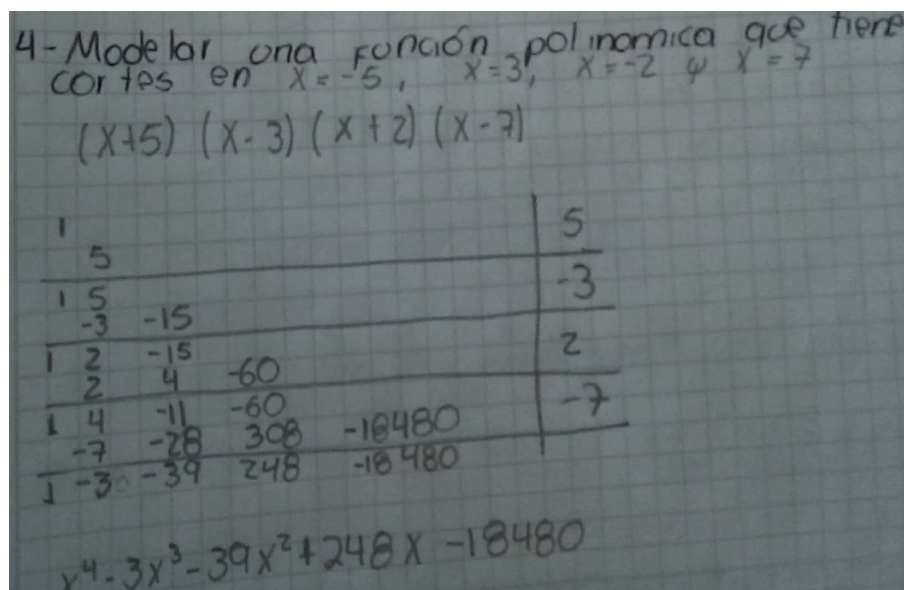 4-Modelar una Función polinomica que tiene
cortes en x=-5, x=3, x=-2 y x=7
(x+5) (x-3) (x+2) (x-7)
1 5
5
1 5 -3
-3 -15
1 2 -15 2
2 4 -60
1 4 -11 -60 -7
-7 -28 308 -18480
1 -3 -39 248 -18480
x⁴-3x³-39x²+248x-18480